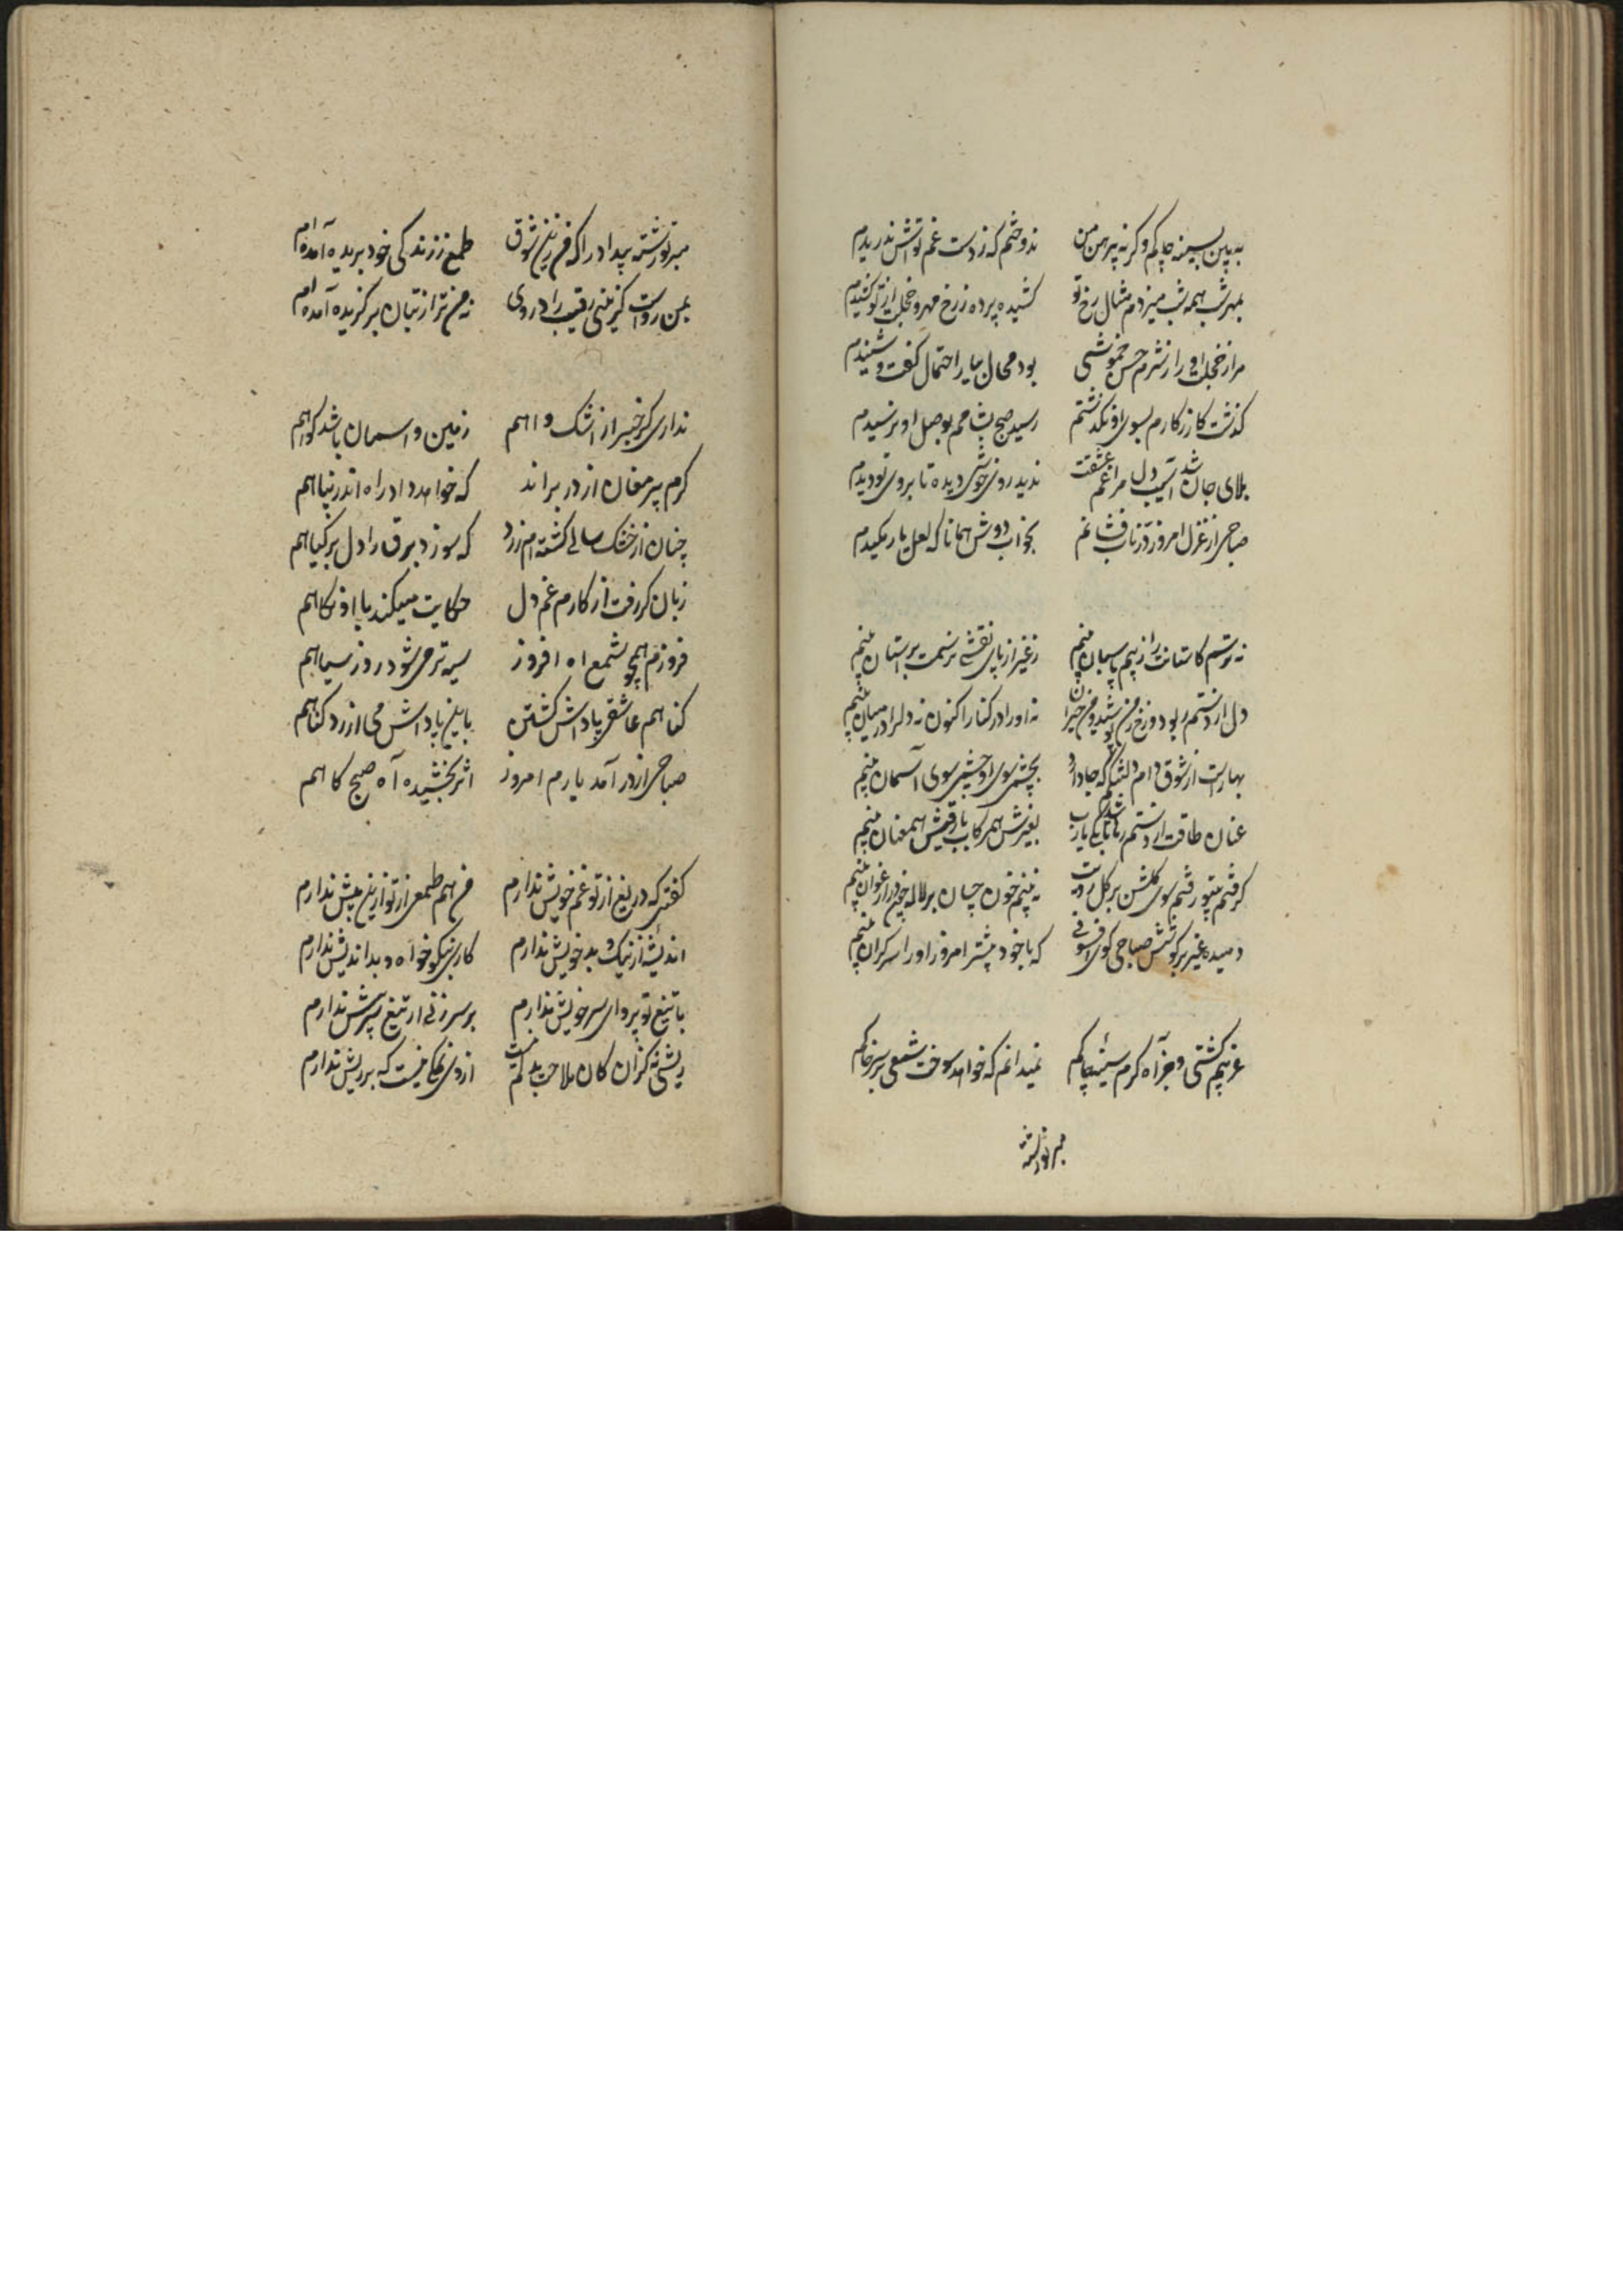 به بین بسینه چاکم وگرنه پیرهن من ندوختم که ز دست غم تواش ندریدم
بمهرشب همه شب میزدم مثال رخ تو کشیده پرده ز رخ مهر و خجلت از تو کشیدم
مرا ز خجلت او را ز شرم حسن خموشی بود محال بیار احتمال گفت و شنیدم
گذشت کار ز کارم بسوی او نگذشتم رسید صبح بشامم بوصل او نرسیدم
بلای جان شد آسیب دل مرا غم عشقت ندید روی خوشی دیده تا بروی تو دیدم
صباحی از غزل امروز قند ناب فشانم بخواب دوش همانا که لعل یار مکیدم
نه ترسم کاستانت را ز بیم پاسبان بینم ز غیر از پای نقشی ترسمت بر آستان بینم
دل از دستم ربود و رخ ز من پوشید و من حیران نه او را در کنار اکنون نه دلرا در میان بینم
بهار است از شوق دام دلتنگم که جا دارد بچشمی سوی او چشمی سوی آسمان بینم
عنان طاقت از دستم رها شد تا بکی یارب بغیرش همرکاب با رقیبش همعنان بینم
گرفتم بیتو رفتم سوی گلشن بر گل رویت نه بینم خون چسان بر لاله چون در ارغوان بینم
دمیده غیر بر گوشش صباحی گوی افسونی که با خود بیشتر امروز او را سرگران بینم
غریبم کشتی و جز آه گرم سینه چاکم نمیدانم که خواهد سوخت شمعی بر سر خاکم
میر نوشته
میر نوشته بیداد را که من زین شوق طمع ز زندگی خود بریده آمده ام
بمن رواست گزینی رقیب را در روی نه من ترا ز بتان برگزیده آمده ام
نداری گر خبر از اشک و اهم زمین و اسمان باشد گواهم
گرم پیر مغان از در براند که خواهد داد راه اندر پناهم
چنان از خشک سالی کشته ام زرد که سوزد برق را دل بر گیاهم
زبان گر رفت از کارم غم دل حکایت میکند با او نگاهم
فروزم همچو شمع اه افروز سیه تر می شود روز سیاهم
گناهم عاشقی پاداش کشتن باین پاداش می ارزد گناهم
صباحی از در آمد یارم امروز اثر بخشیده آه صبح گاهم
گفتی که دریغ از تو غم خویش ندارم من هم طمعی از تو ازین بیش ندارم
اندیشه از نیک و بد خویش ندارم کاری بنکوخواه و بداندیش ندارم
با تیغ تو پروای سر خویش ندارم بر سر زنی ار تیغ سپر پیش ندارم
ریشی نه کزان کان ملاحت بدلم نیست از وی نمکی نیست که بر ریش ندارم